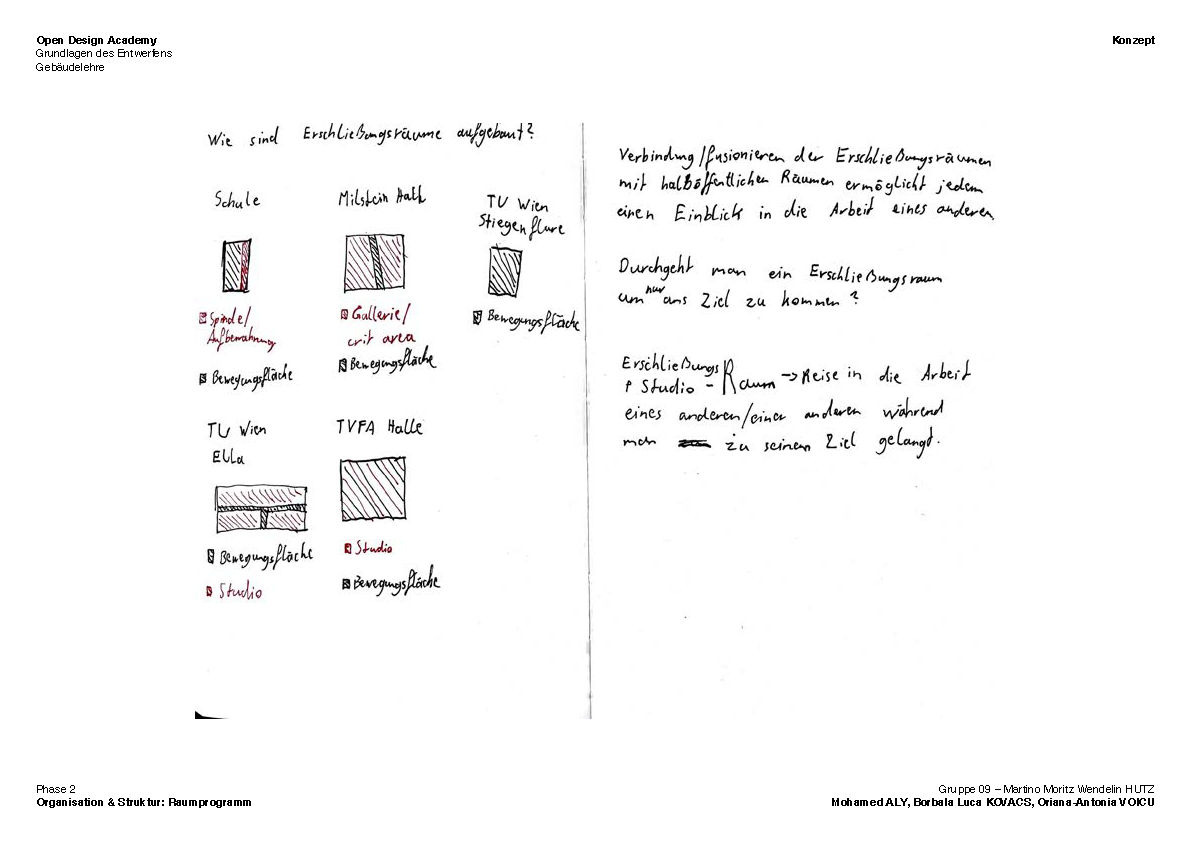 Open Design Academy
Grundlagen des Entwerfens
Gebäudelehre
Konzept
Wie sind Erschließungsräume aufgebaut?
Schule
Spinde/
Aufbewahrung
Bewegungsfläche
Milstein Hall
Gallerie/
crit area
Bewegungsfläche
TU Wien
Stiegenflure
Bewegungsfläche
TU Wien
ELLa
Bewegungsfläche
Studio
TVFA Halle
Studio
Bewegungsfläche
Verbindung/fusionieren der Erschließungsräumen
mit halböffentlichen Räumen ermöglicht jedem
einen Einblick in die Arbeit eines anderen
Durchgeht man ein Erschließungsraum
um nur ans Ziel zu kommen?
Erschließungs
+ Studio - Raum -> Reise in die Arbeit
eines anderen/einer anderen während
man zu seinem Ziel gelangt.
Phase 2
Organisation & Struktur: Raumprogramm
Gruppe 09 – Martino Moritz Wendelin HUTZ
Mohamed ALY, Borbala Luca KOVACS, Oriana-Antonia VOICU